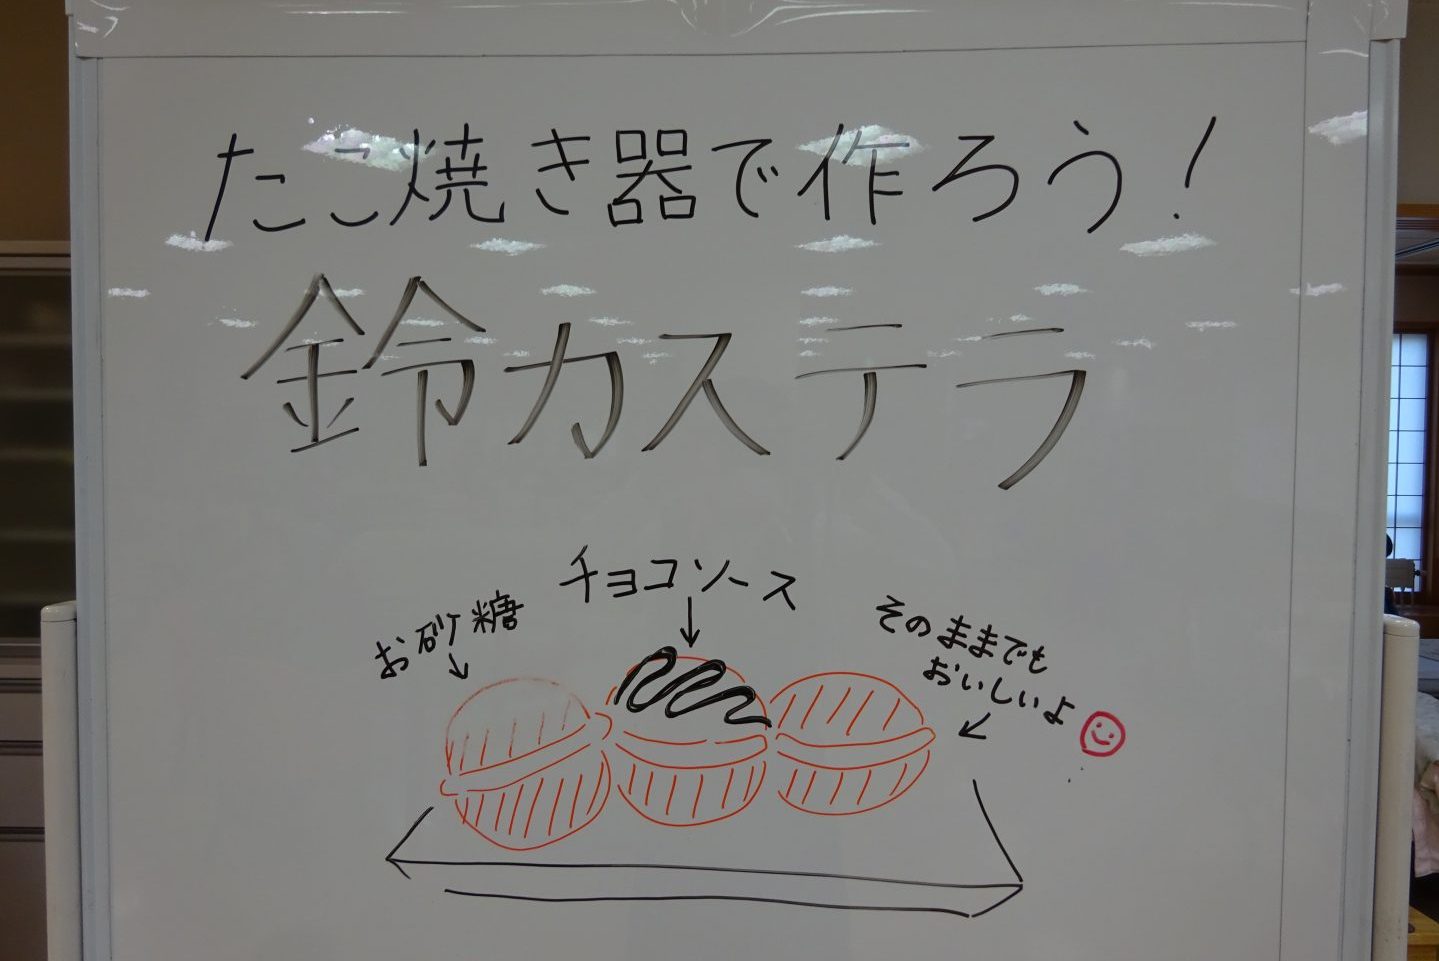 たこ焼き器で作ろう!
鈴カステラ
チョコソース
お砂糖
そのままでも
おいしいよ